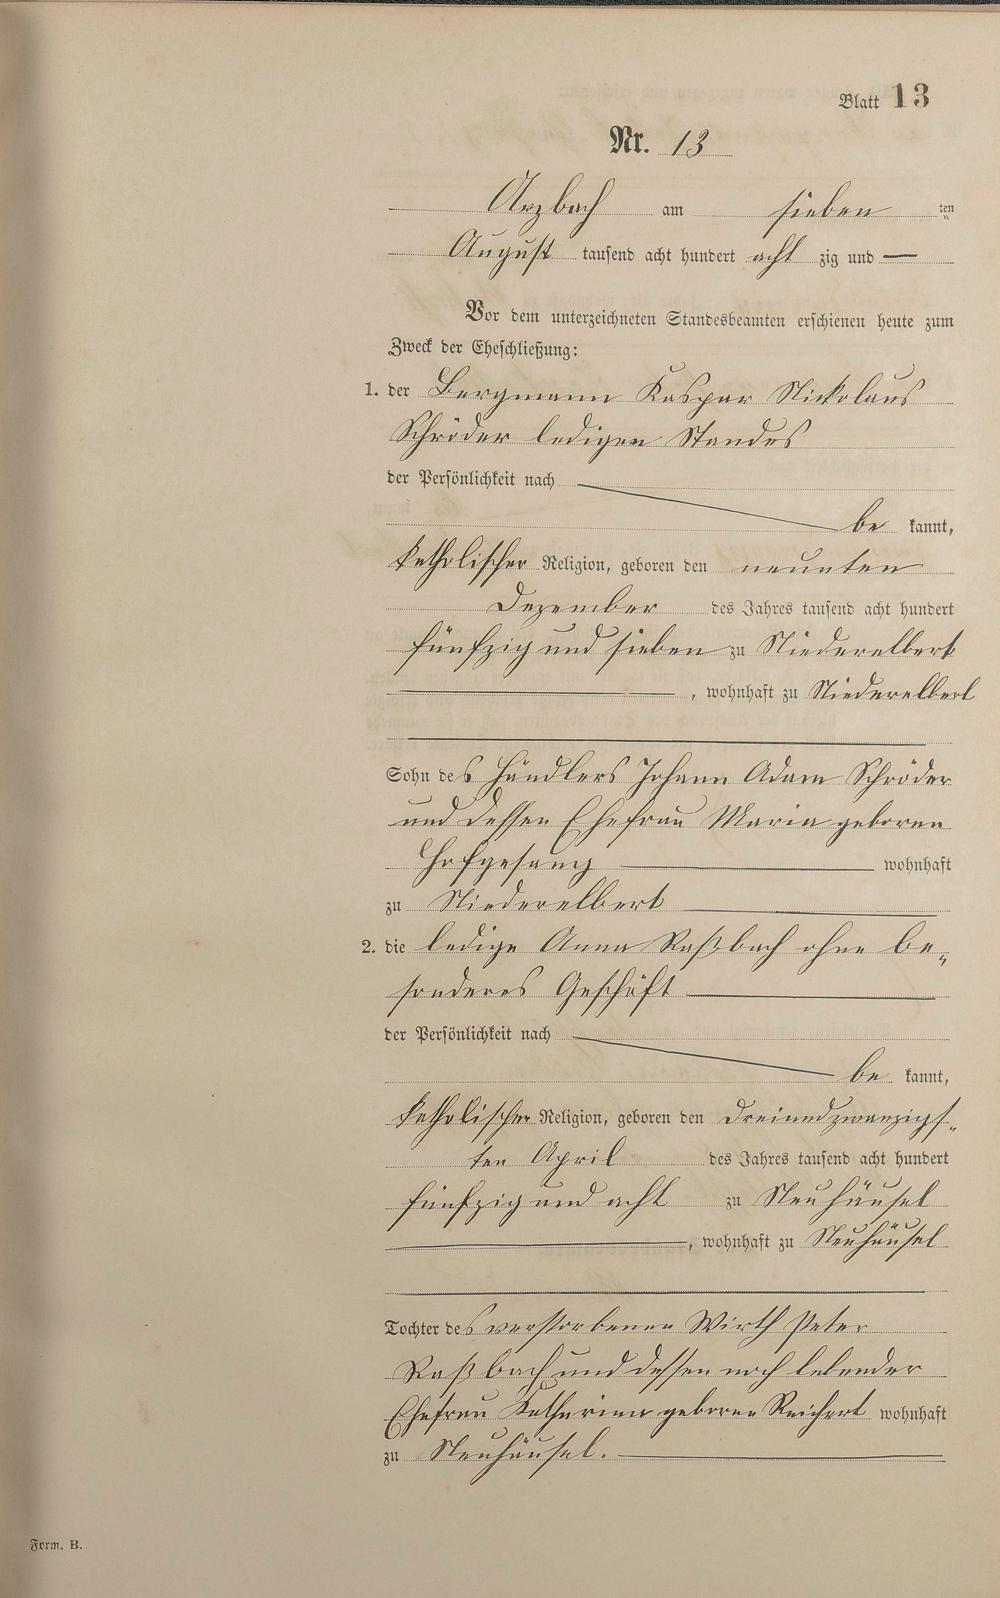 Blatt 13
Nr. 13
Arzbach am sieben ten
August tausend acht hundert acht zig und —
Vor dem unterzeichneten Standesbeamten erschienen heute zum
Zweck der Eheschließung:
1. der Bergmann Kaspar Nickolaus
Schröder ledigen Standes
der Persönlichkeit nach
be kannt,
katholischer Religion, geboren den neunten
Dezember des Jahres tausend acht hundert
fünfzig und sieben zu Niederelbert
, wohnhaft zu Niederelbert
Sohn des Händlers Johann Adam Schröder
und dessen Ehefrau Maria geboren
Hofgesang wohnhaft
zu Niederelbert
2. die ledige Anna Raßbach ohne be„
sonderes Geschäft
der Persönlichkeit nach
be kannt,
katholischer Religion, geboren den dreiundzwanzigs„
ten April des Jahres tausend acht hundert
fünfzig und acht zu Neuhäusel
, wohnhaft zu Neuhäusel
Tochter des verstorbenen Wirth Peter
Raßbach und dessen noch lebender
Ehefrau Katharina geboren Reichert wohnhaft
zu Neuhäusel.
Form. B.